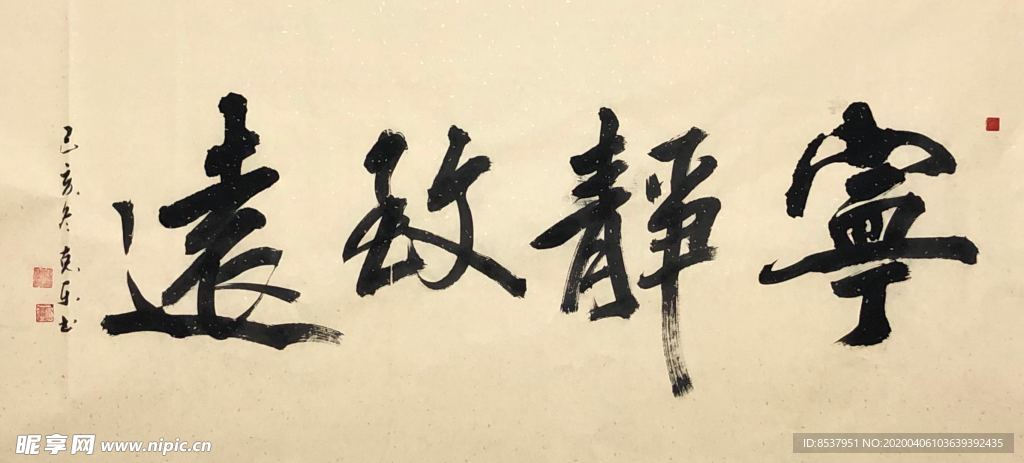 寧靜致遠
己亥冬克乐书
昵享网 www.nipic.cn
ID:8537951 NO:20200406103639392435